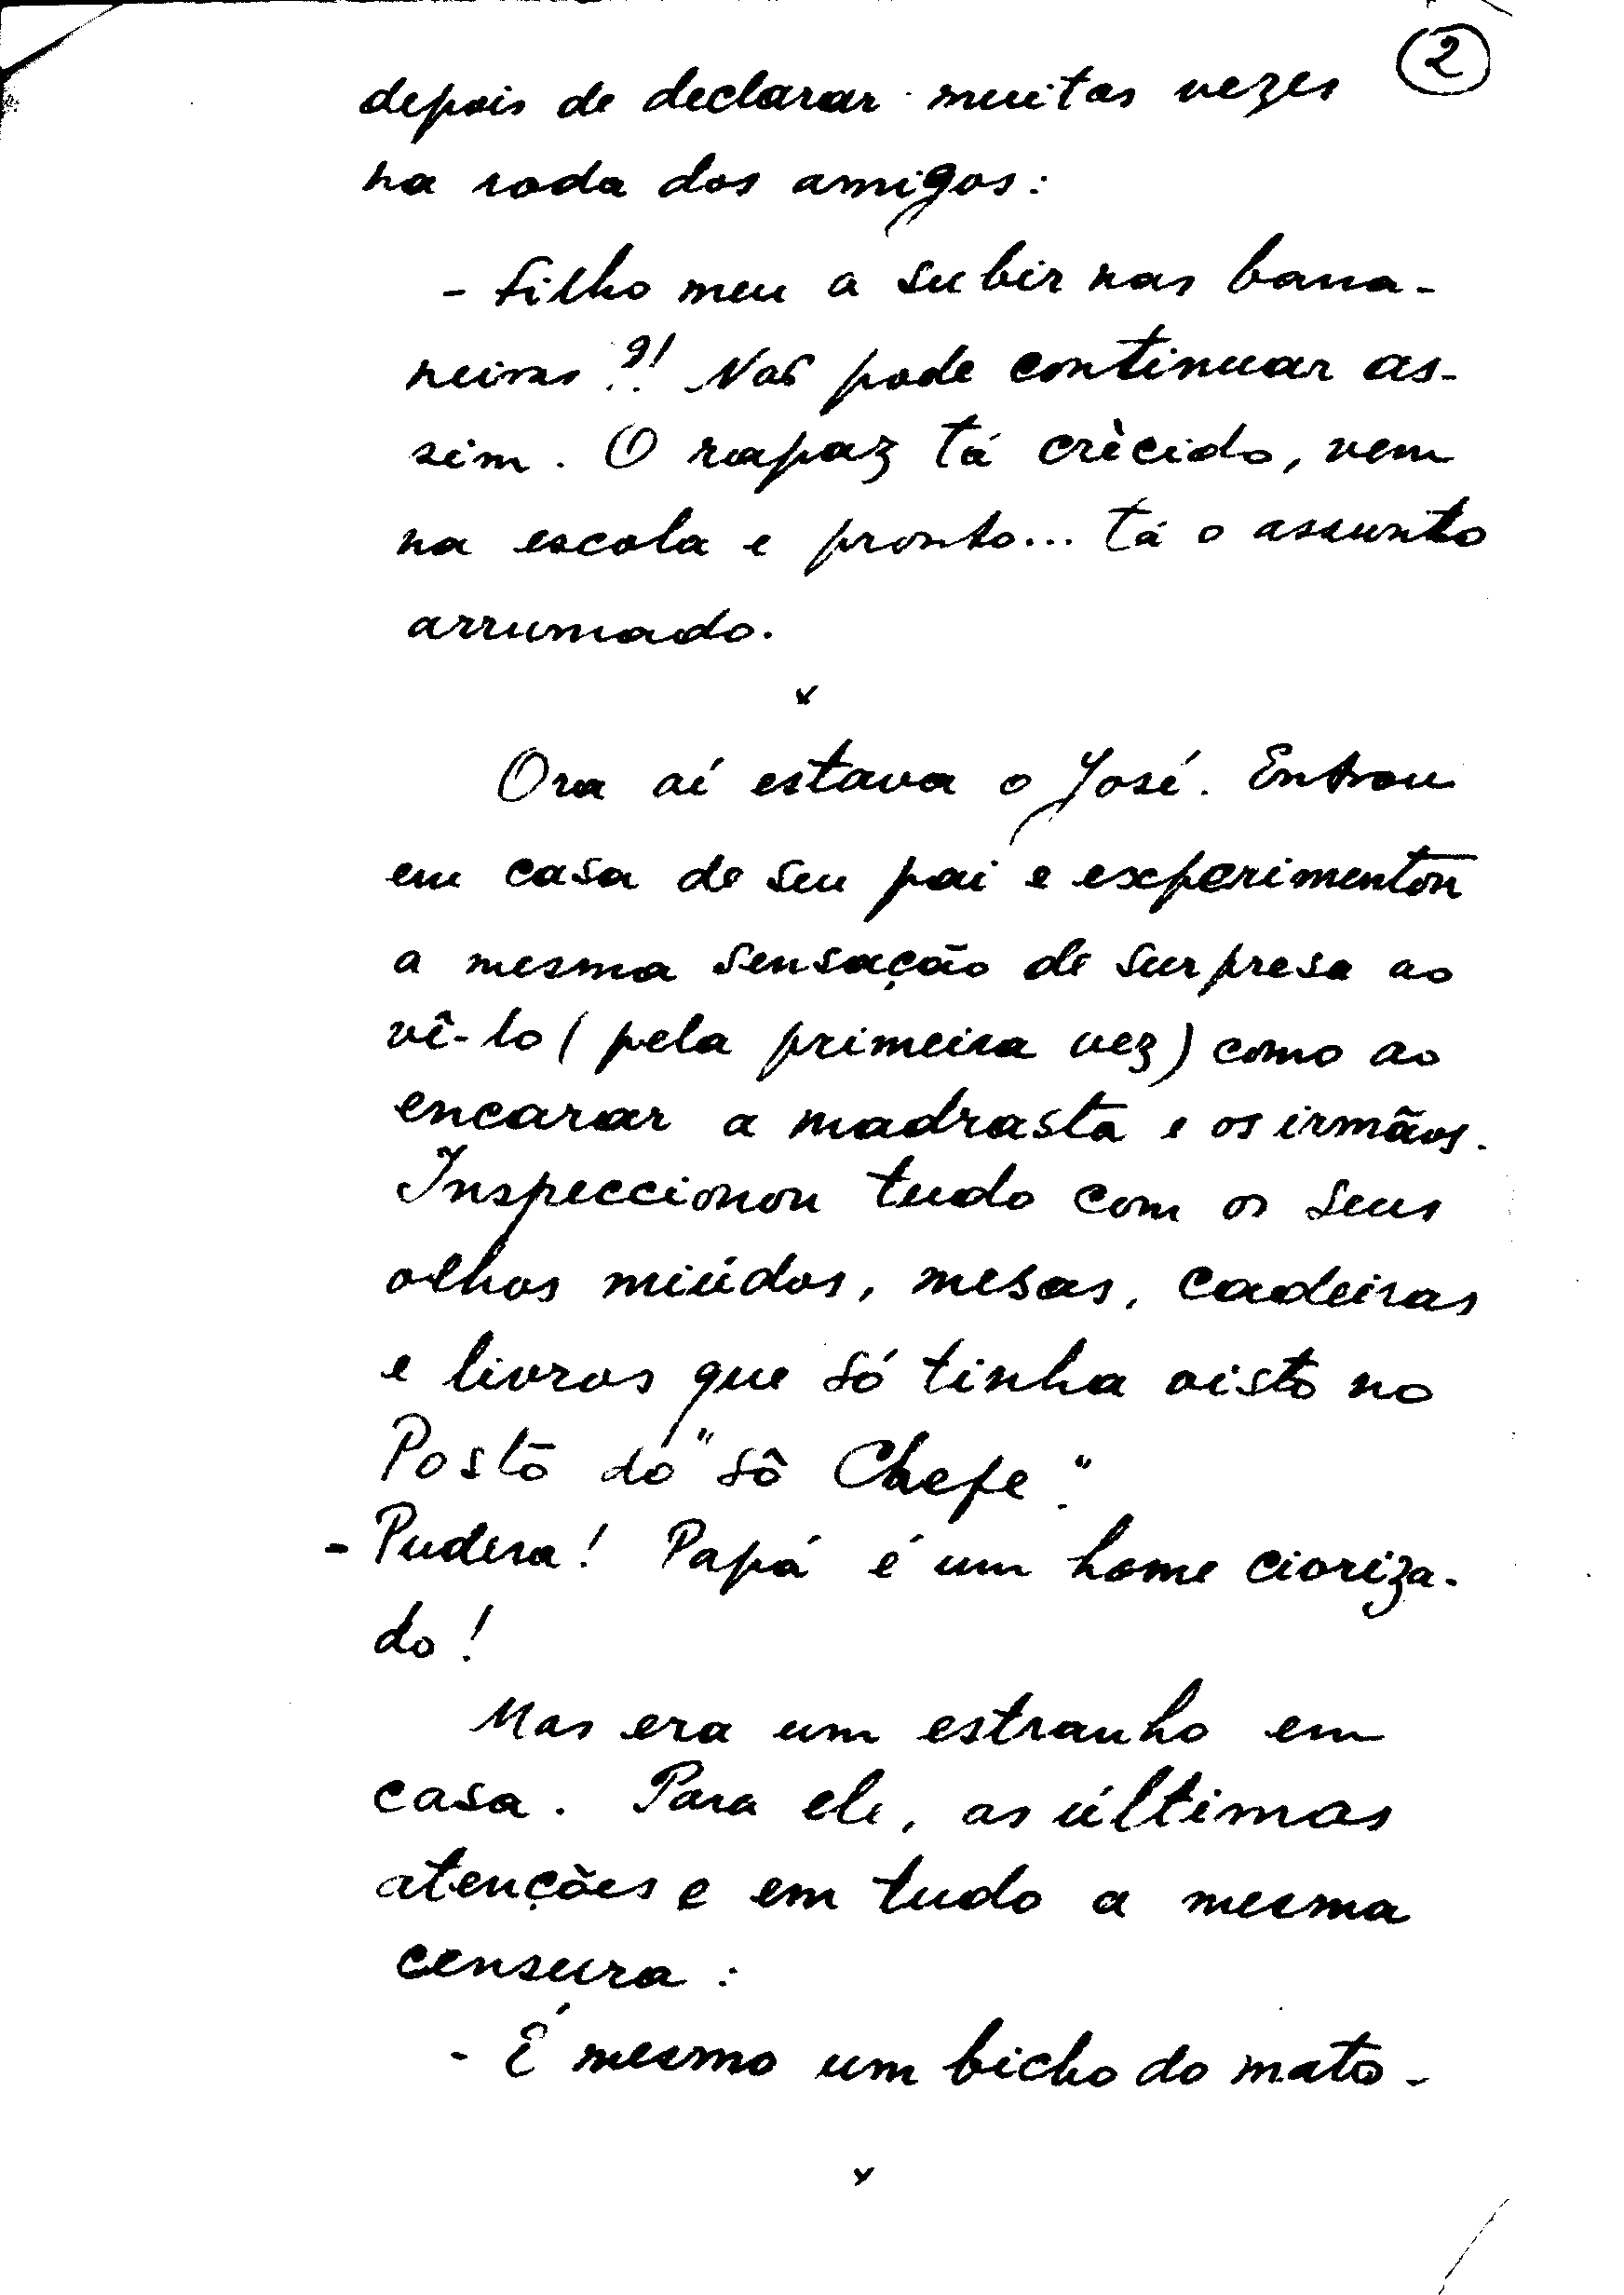 2
depois de declarar muitas vezes
na roda dos amigos:
- Filho meu a subir nas bana-
neiras?! Não pode continuar as-
sim. O rapaz tá crècido, vem
na escola e pronto... tá o assunto
arrumado.
x
Ora aí estava o José. Entrou
em casa de seu pai e experimentou
a mesma sensação de surpresa ao
vê-lo (pela primeira vez) como ao
encarar a madrasta e os irmãos.
Inspeccionou tudo com os seus
olhos miúdos, mesas, cadeiras
e livros que só tinha visto no
Posto do "sô Chefe".
- Pudera! Papá é um home cioriza-
do!
Mas era um estranho em
casa. Para ele, as últimas
atenções e em tudo a mesma
censura:
- É mesmo um bicho do mato -
x